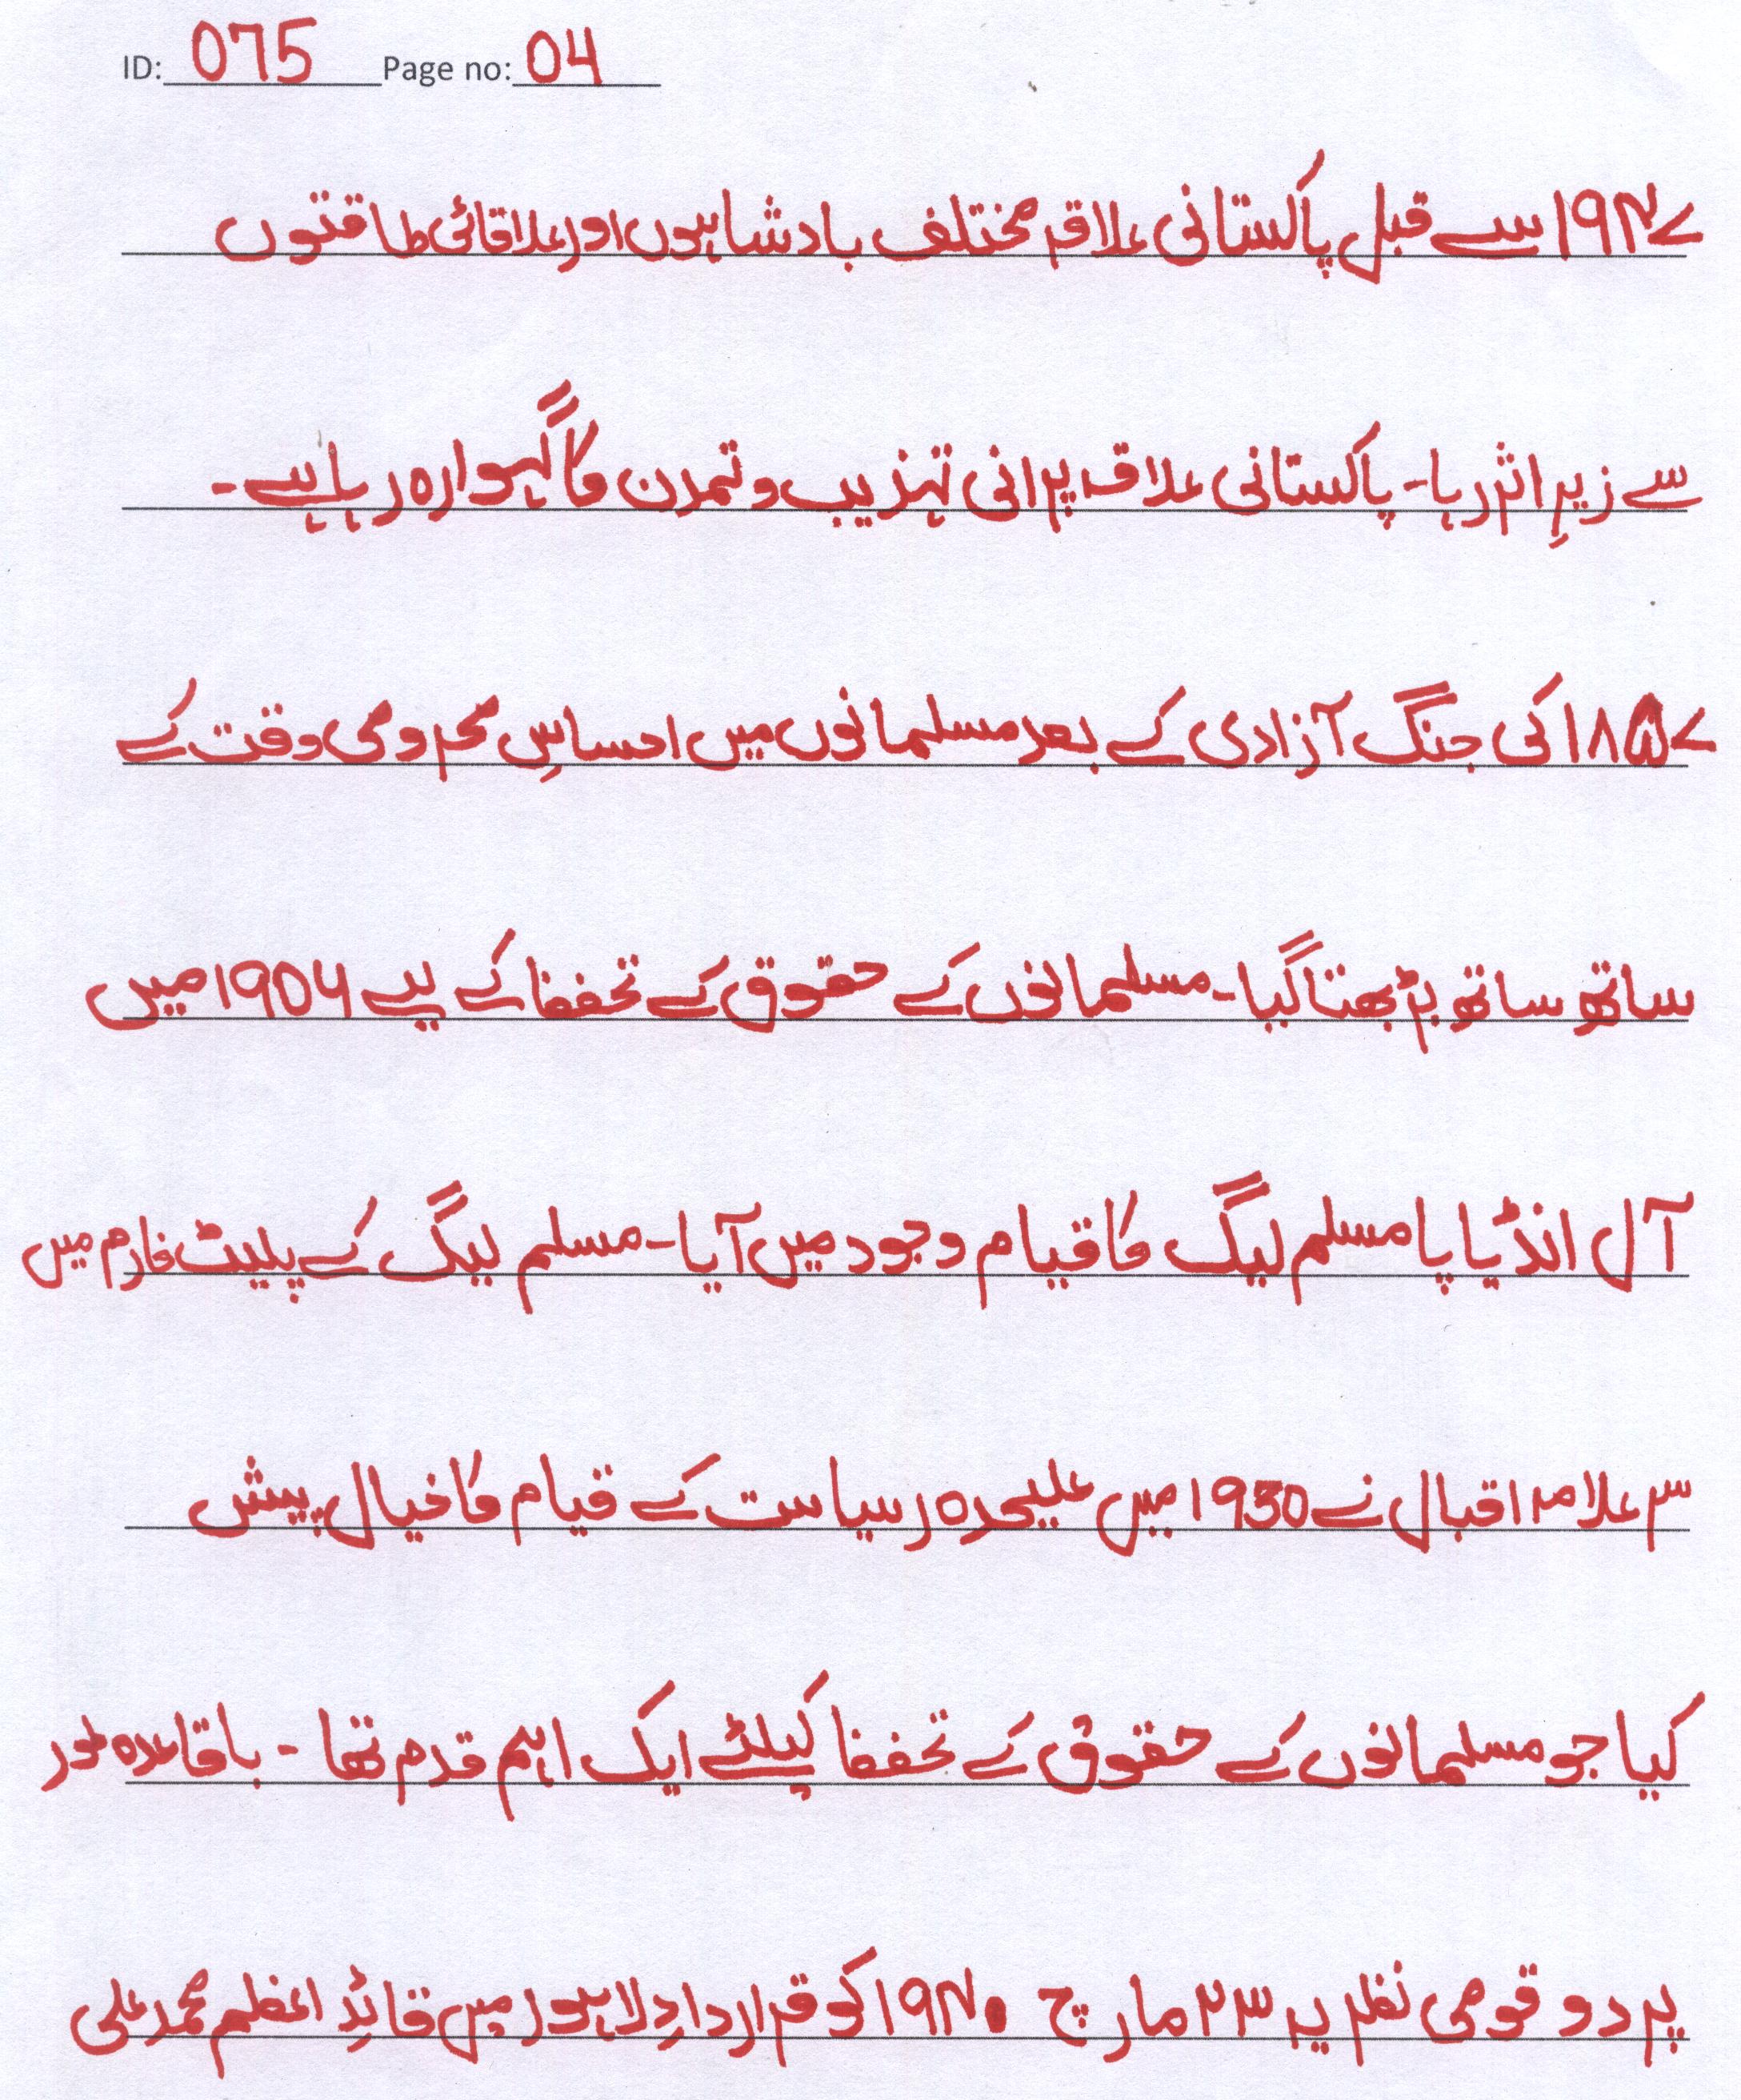 ID: 075 Page no: 04
۱۹۴۷ سے قبل پاکستانی علاقہ مختلف بادشاہوں اور علاقائی طاقتوں
سے زیرِ اثر رہا۔ پاکستانی علاقہ پرانی تہذیب و تمدن کا گہوارہ رہا ہے۔
۱۸۵۷ کی جنگ آزادی کے بعد مسلمانوں میں احساسِ محرومی وقت کے
ساتھ ساتھ بڑھتا گیا۔ مسلمانوں کے حقوق کے تحفظ کے لیے ۱۹۰۴ میں
آل انڈیا پا مسلم لیگ کا قیام وجود میں آیا۔ مسلم لیگ کے پلیٹ فارم میں
۳ علامہ اقبال نے 1930 میں علیحدہ ریاست کے قیام کا خیال پیش
کیا جو مسلمانوں کے حقوق کے تحفظ کیلئے ایک اہم قدم تھا ۔ باقاعدہ طور
پر دو قومی نظریہ ۲۳ مارچ ۱۹۴۰ کو قراردادِ لاہور میں قائدِ اعظم محمد علی